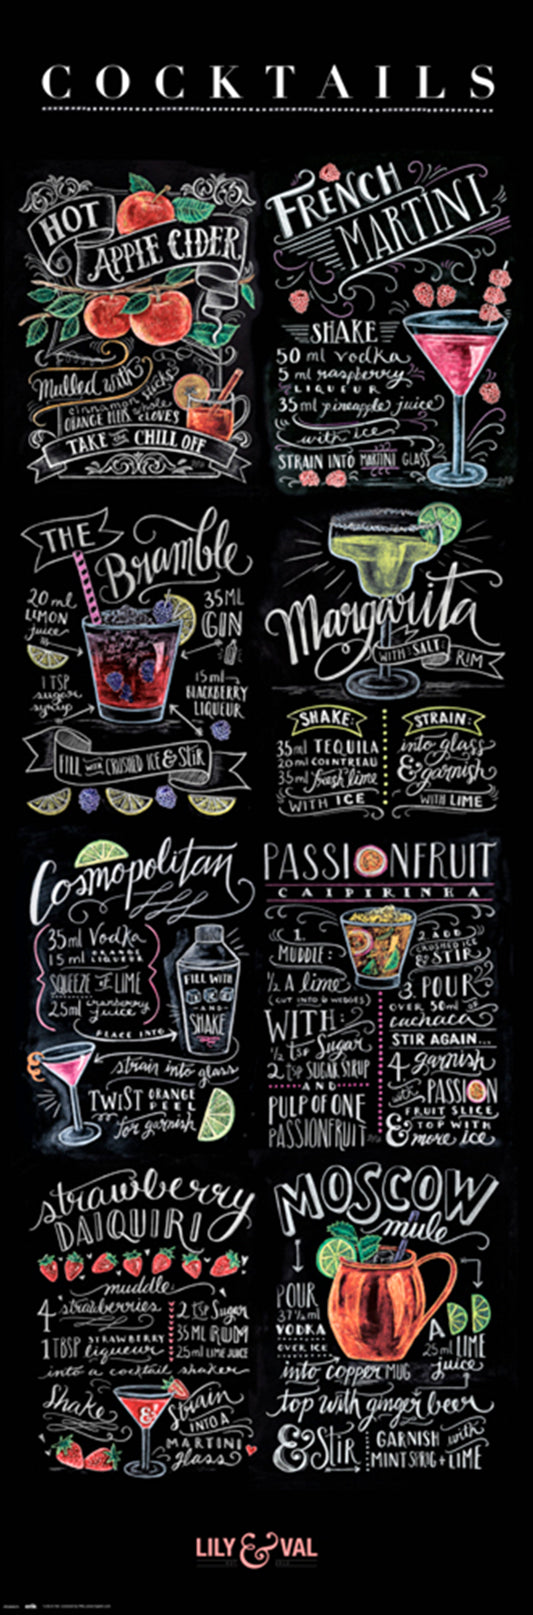 COCKTAILS
HOT
APPLE CIDER
Mulled with
cinnamon sticks
ORANGE PEELS whole CLOVES
TAKE THE CHILL OFF
FRENCH
MARTINI
SHAKE
50 ml vodka
5 ml raspberry
LIQUEUR
35 ml pineapple juice
with ice
STRAIN INTO MARTINI GLASS
THE
Bramble
20 ml
LEMON
juice
35ML
GIN
1 TSP
sugar
syrup
15 ml
BLACKBERRY
LIQUEUR
FILL WITH CRUSHED ICE & STIR
Margarita
WITH SALT
RIM
SHAKE:
35ml TEQUILA
20ml COINTREAU
35ml fresh lime
WITH ICE
STRAIN:
into glass
& garnish
WITH LIME
Cosmopolitan
35ml Vodka
15ml ORANGE
LIQUEUR
SQUEEZE OF LIME
25ml cranberry
juice
PLACE INTO
FILL WITH
ICE
AND
SHAKE
strain into glass
TWIST ORANGE
PEEL
for garnish
PASSIONFRUIT
CAIPIRINHA
1.
MUDDLE:
1/2 A lime
(CUT INTO 6 WEDGES)
WITH:
1/2 tsp Sugar
2 tsp SUGAR SYRUP
AND
PULP OF ONE
PASSIONFRUIT
2. ADD
CRUSHED ICE
& STIR
3. POUR
OVER 50ml of
cachaca
STIR AGAIN...
4 garnish
with PASSION
FRUIT SLICE
& TOP WITH
more ice
strawberry
DAIQUIRI
muddle
4 strawberries
1 TBSP STRAWBERRY
liqueur
2 TSP Sugar
35 ML RUM
25ml LIME JUICE
into a cocktail shaker
Shake
&
Strain
INTO A
MARTINI
glass
MOSCOW
mule
POUR
37 1/2 ml
VODKA
OVER ICE
A
25 ml LIME
juice
into copper MUG
top with ginger beer
& STIR
GARNISH with
MINT SPRIG + LIME
LILY & VAL